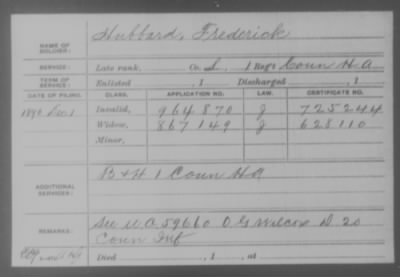 NAME OF SOLDIER: Hubbard, Frederick
SERVICE: Late rank, Co. L, 1 Reg't Conn H A
TERM OF SERVICE: Enlisted , 1 Discharged , 1
DATE OF FILING. CLASS. APPLICATION NO. LAW. CERTIFICATE NO.
1890 Dec 1 Invalid, 964870 J 725244
Widow, 867149 J 628110
Minor,
ADDITIONAL SERVICES: B & H 1 Conn HA
REMARKS: See W.O. 59660 O G Wilcox D. 20
Conn Inf
Died , 1 , at